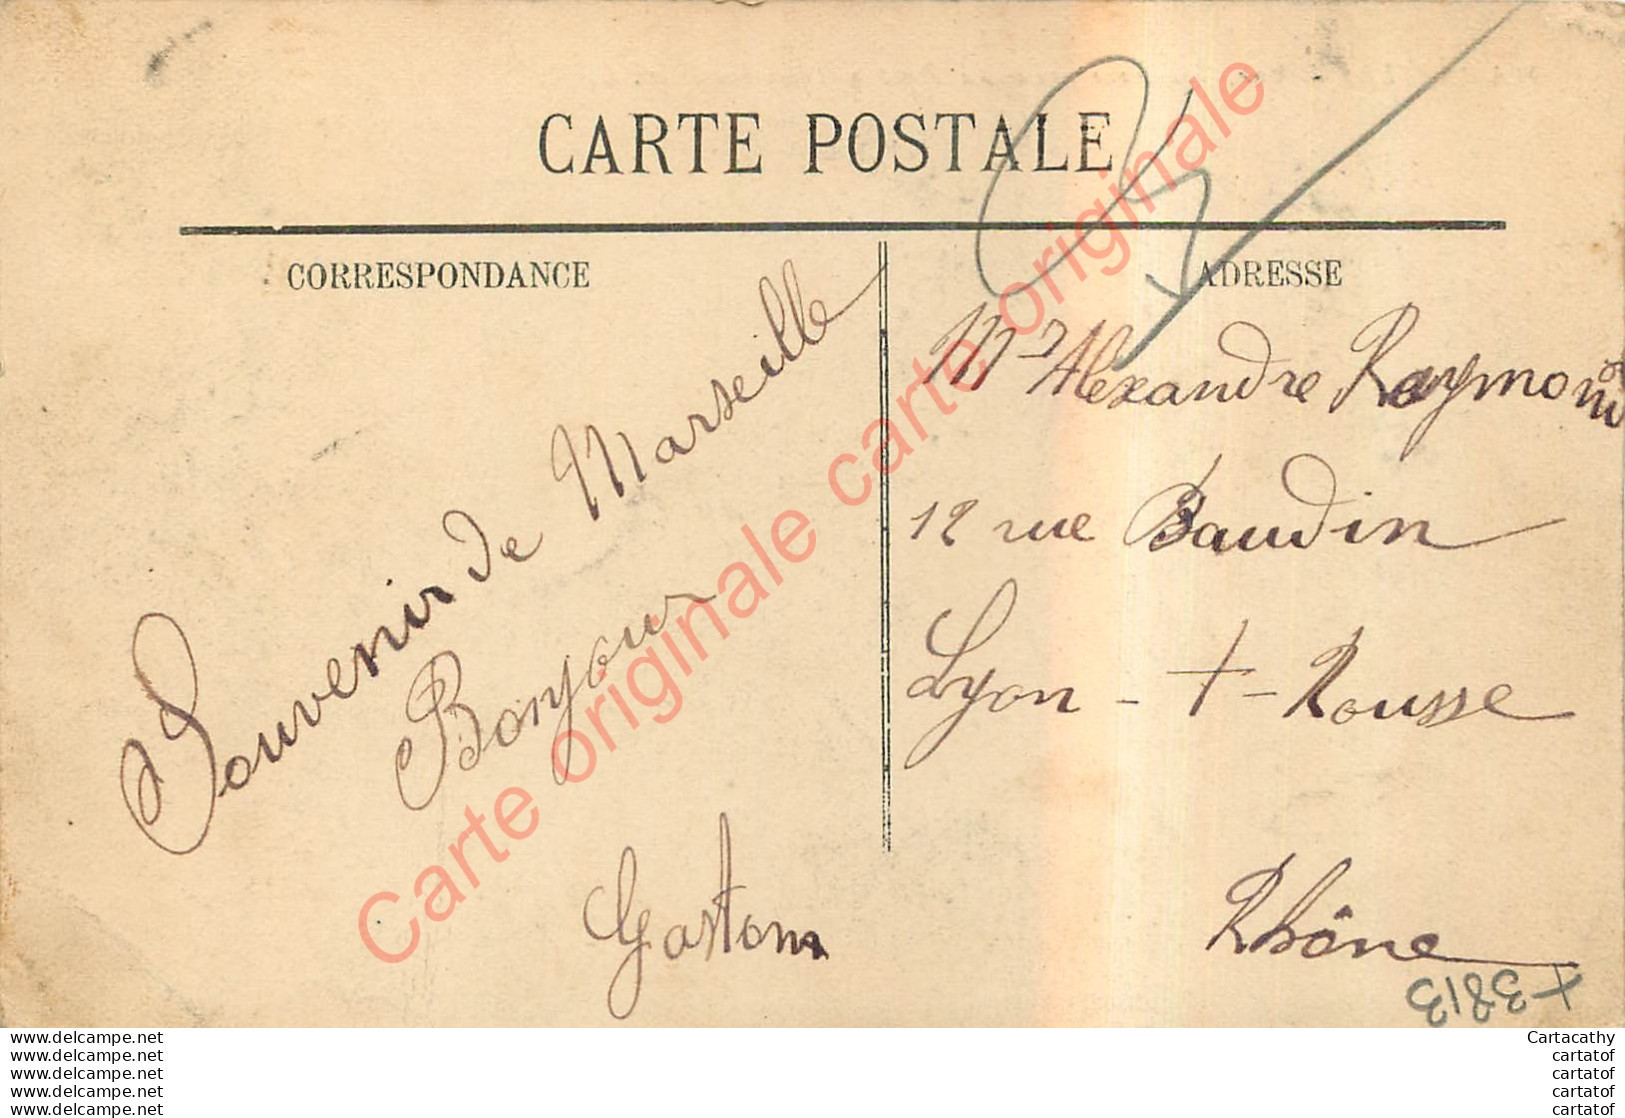 CARTE POSTALE
CORRESPONDANCE
Souvenir de Marseille
Bonjour
Gaston
ADRESSE
Mr Alexandre Raymond
12 rue Baudin
Lyon - + - Rousse
Rhône
+ 3813
Carte originale carte originale
www.delcampe.net
www.delcampe.net
www.delcampe.net
www.delcampe.net
www.delcampe.net
Cartacathy
cartatof
cartatof
cartatof
cartatof